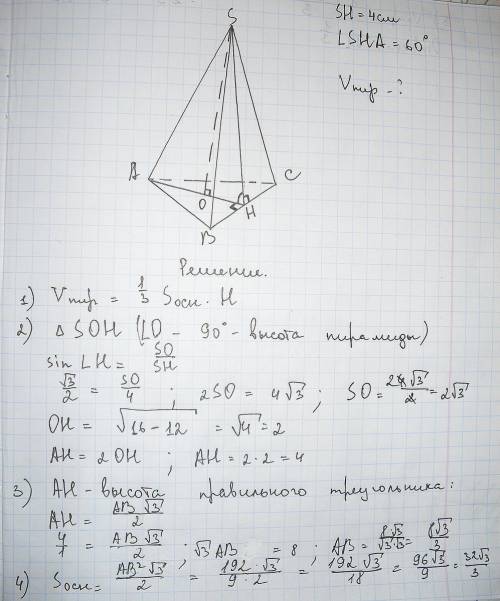 SH = 4см
∠SHA = 60°
Vпир - ?
S
A
C
O
H
B
Решение.
1) Vпир = 1/3 Sосн · H
2) △ SOH (∠O - 90° - высота пирамиды)
sin ∠H = SO/SH
√3/2 = SO/4 ; 2SO = 4√3 ; SO = 24√3/2 = 2√3
OH = √(16 - 12) = √4 = 2
AH = 2OH ; AH = 2 · 2 = 4
3) AH - высота правильного треугольника:
AH = AB √3/2
4/1 = AB √3/2 ; √3 AB = 8 ; AB = 8·√3/√3·√3 = 8√3/3
4) Sосн = AB²√3/2 = 192·√3/9·2 = 192√3/18 = 96√3/9 = 32√3/3